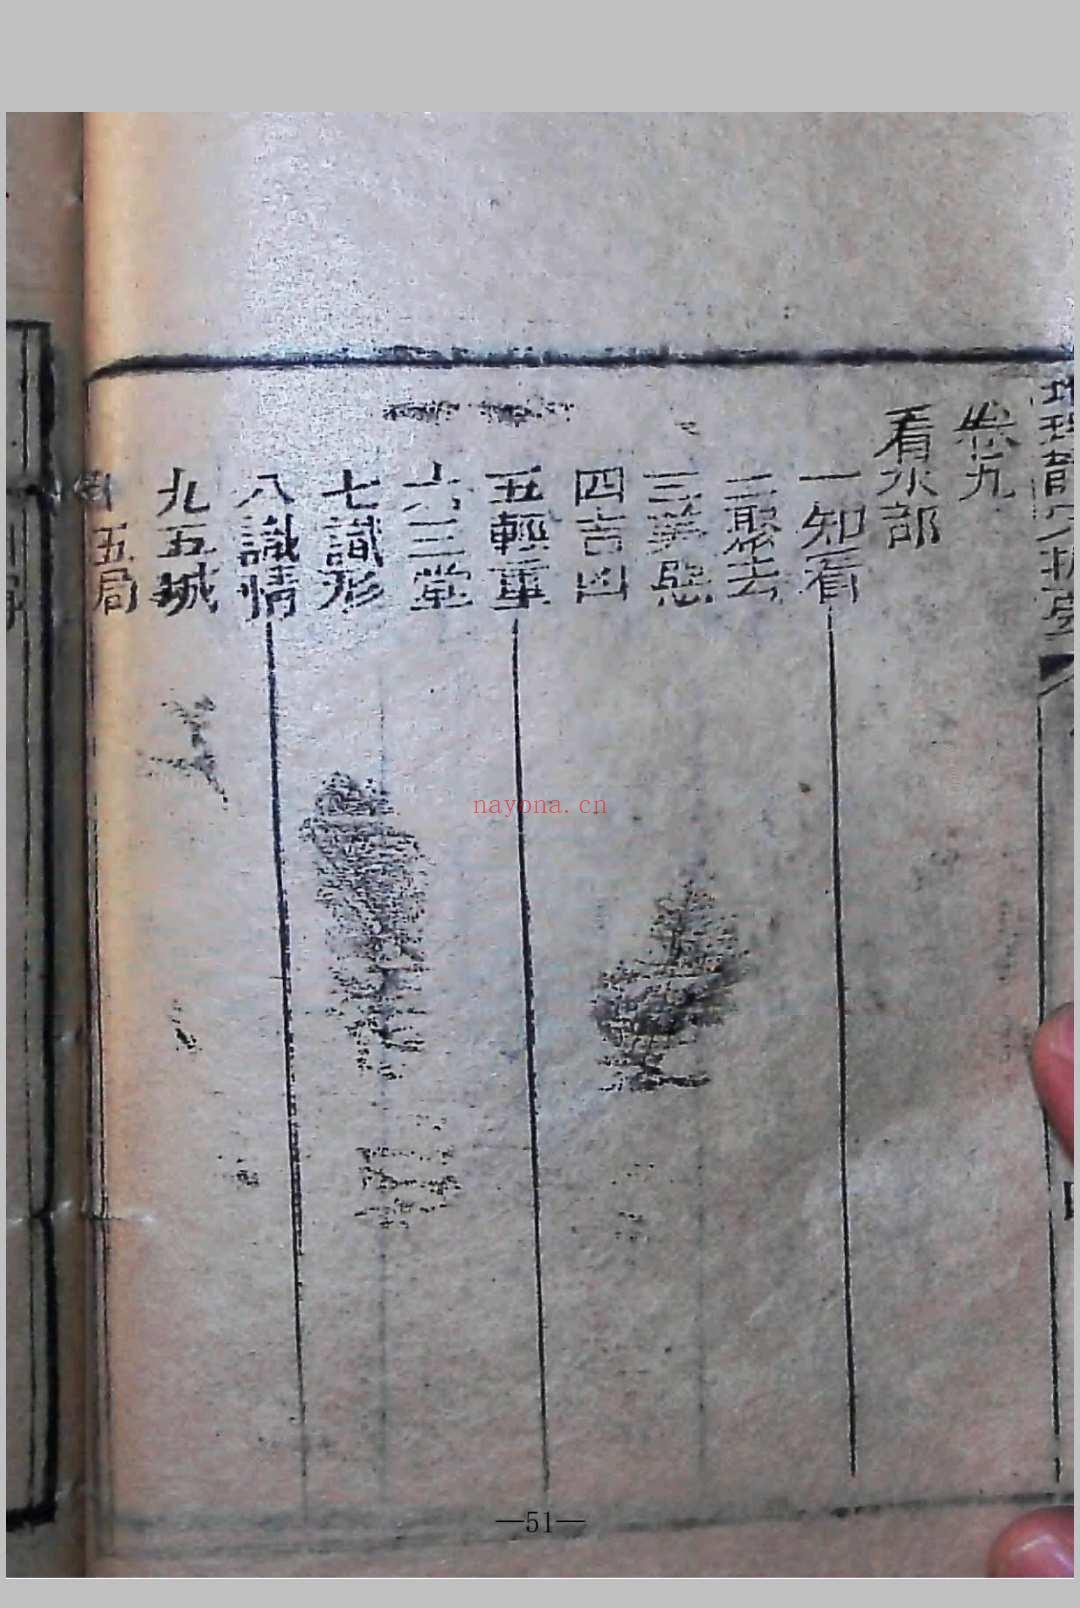 卷九
看水部
一知看
二聚去
三美惡
四吉凶
五輕重
六三堂
七識形
八識情
九五城
五局
nayona.cn
—51—